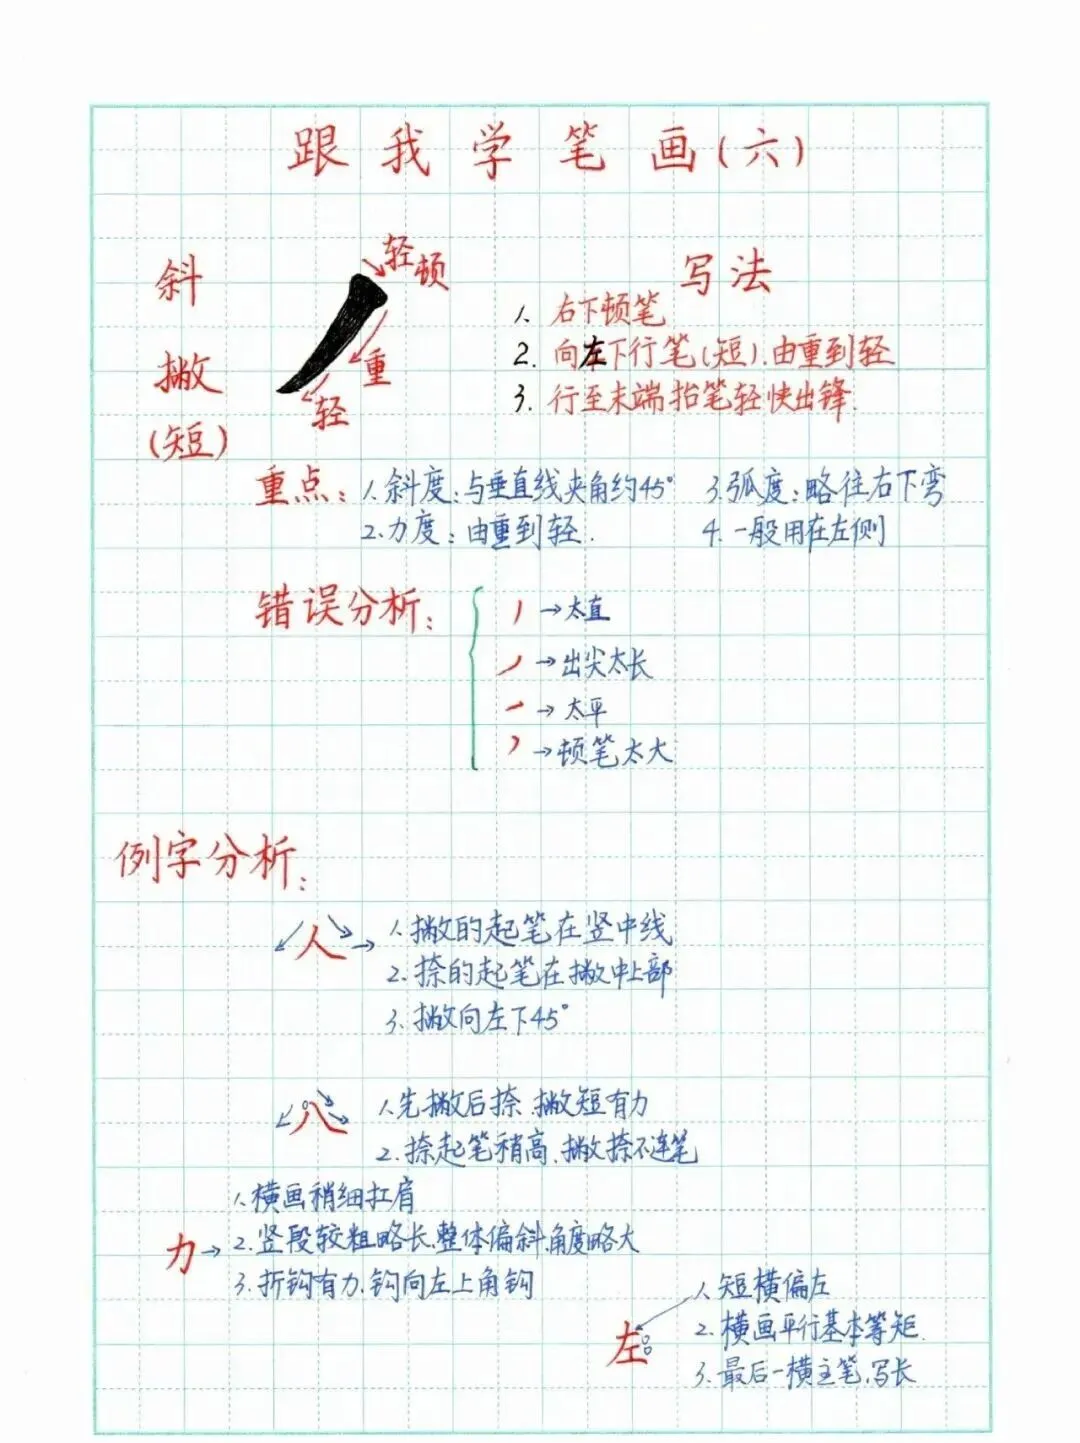 跟我学笔画(六)
斜撇(短)
轻顿
重
轻
写法
1. 右下顿笔
2. 向左下行笔(短).由重到轻
3. 行至末端抬笔轻快出锋.
重点:
1.斜度:与垂直线夹角约45°
2.力度:由重到轻.
3.弧度:略往右下弯
4.一般用在左侧
错误分析:
→太直
→出尖太长
→太平
→顿笔太大
例字分析:
人
1.撇的起笔在竖中线
2.捺的起笔在撇中上部
3.撇向左下45°
八
1.先撇后捺、撇短有力
2.捺起笔稍高、撇捺不连笔
力→
1.横画稍细扛肩
2.竖段较粗略长、整体偏斜、角度略大
3.折钩有力、钩向左上角钩
左
1.短横偏左
2.横画平行基本等矩.
3.最后一横主笔、写长